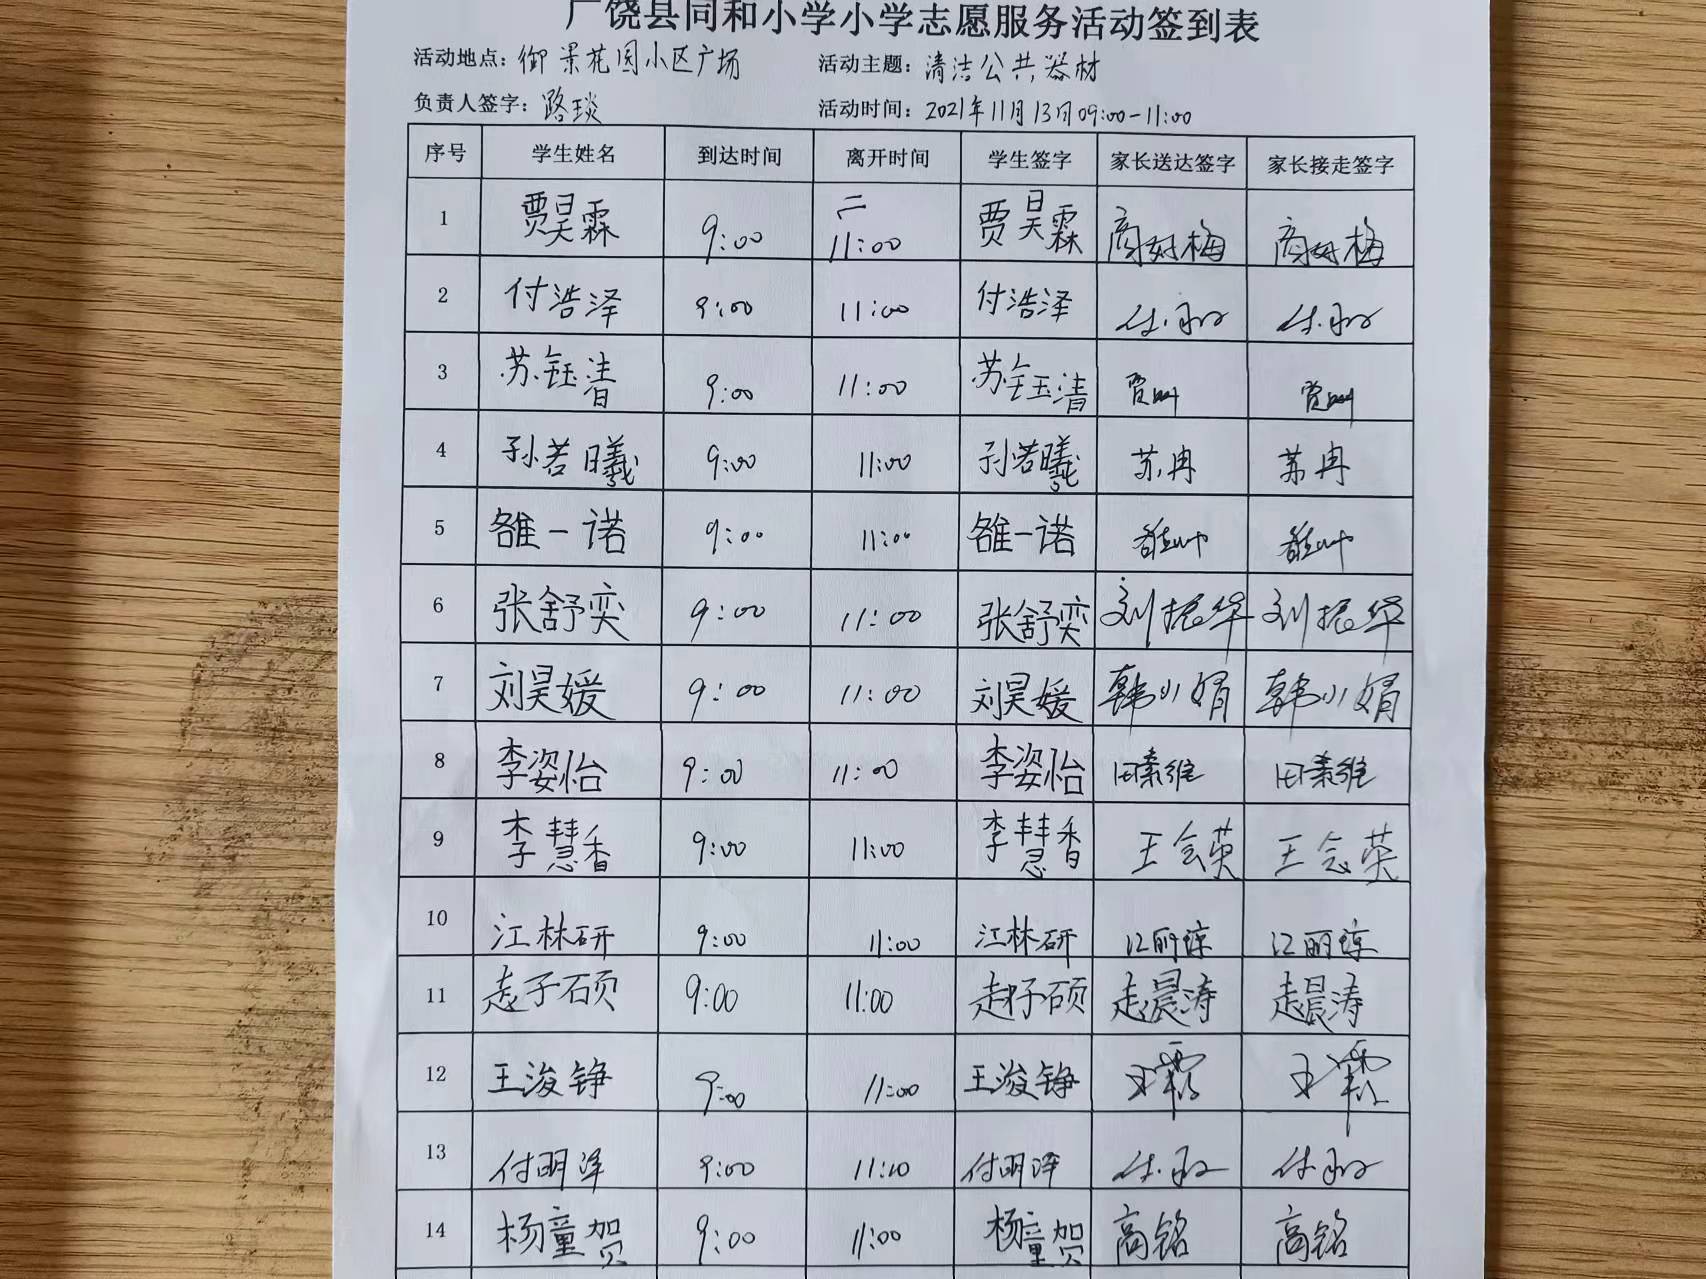 广饶县同和小学小学志愿服务活动签到表
活动地点：御景花园小区广场 活动主题：清洁公共器材
负责人签字：路琰 活动时间：2021年11月13日09:00-11:00
序号 学生姓名 到达时间 离开时间 学生签字 家长送达签字 家长接走签字
1 贾昊霖 9:00 二 11:00 贾昊霖
2 付浩泽 9:00 11:00 付浩泽
3 苏钰清 9:00 11:00 苏钰清
4 孙若曦 9:00 11:00 孙若曦 苏冉 苏冉
5 雒一诺 9:00 11:00 雒一诺
6 张舒奕 9:00 11:00 张舒奕 刘振华 刘振华
7 刘昊媛 9:00 11:00 刘昊媛 韩小娟 韩小娟
8 李姿怡 9:00 11:00 李姿怡 田素维 田素维
9 李慧香 9:00 11:00 李慧香 王会英 王会英
10 江林研 9:00 11:00 江林研 江丽琼 江丽琼
11 赵子硕 9:00 11:00 赵子硕 赵晨涛 赵晨涛
12 王浚铮 9:00 11:00 王浚铮 王霞 王霞
13 付明泽 9:00 11:10 付明泽
14 杨童贺 9:00 11:00 杨童贺 高铭 高铭